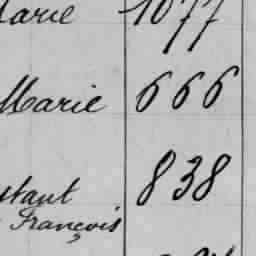 Marie 1077
Marie 666
stant 838
François